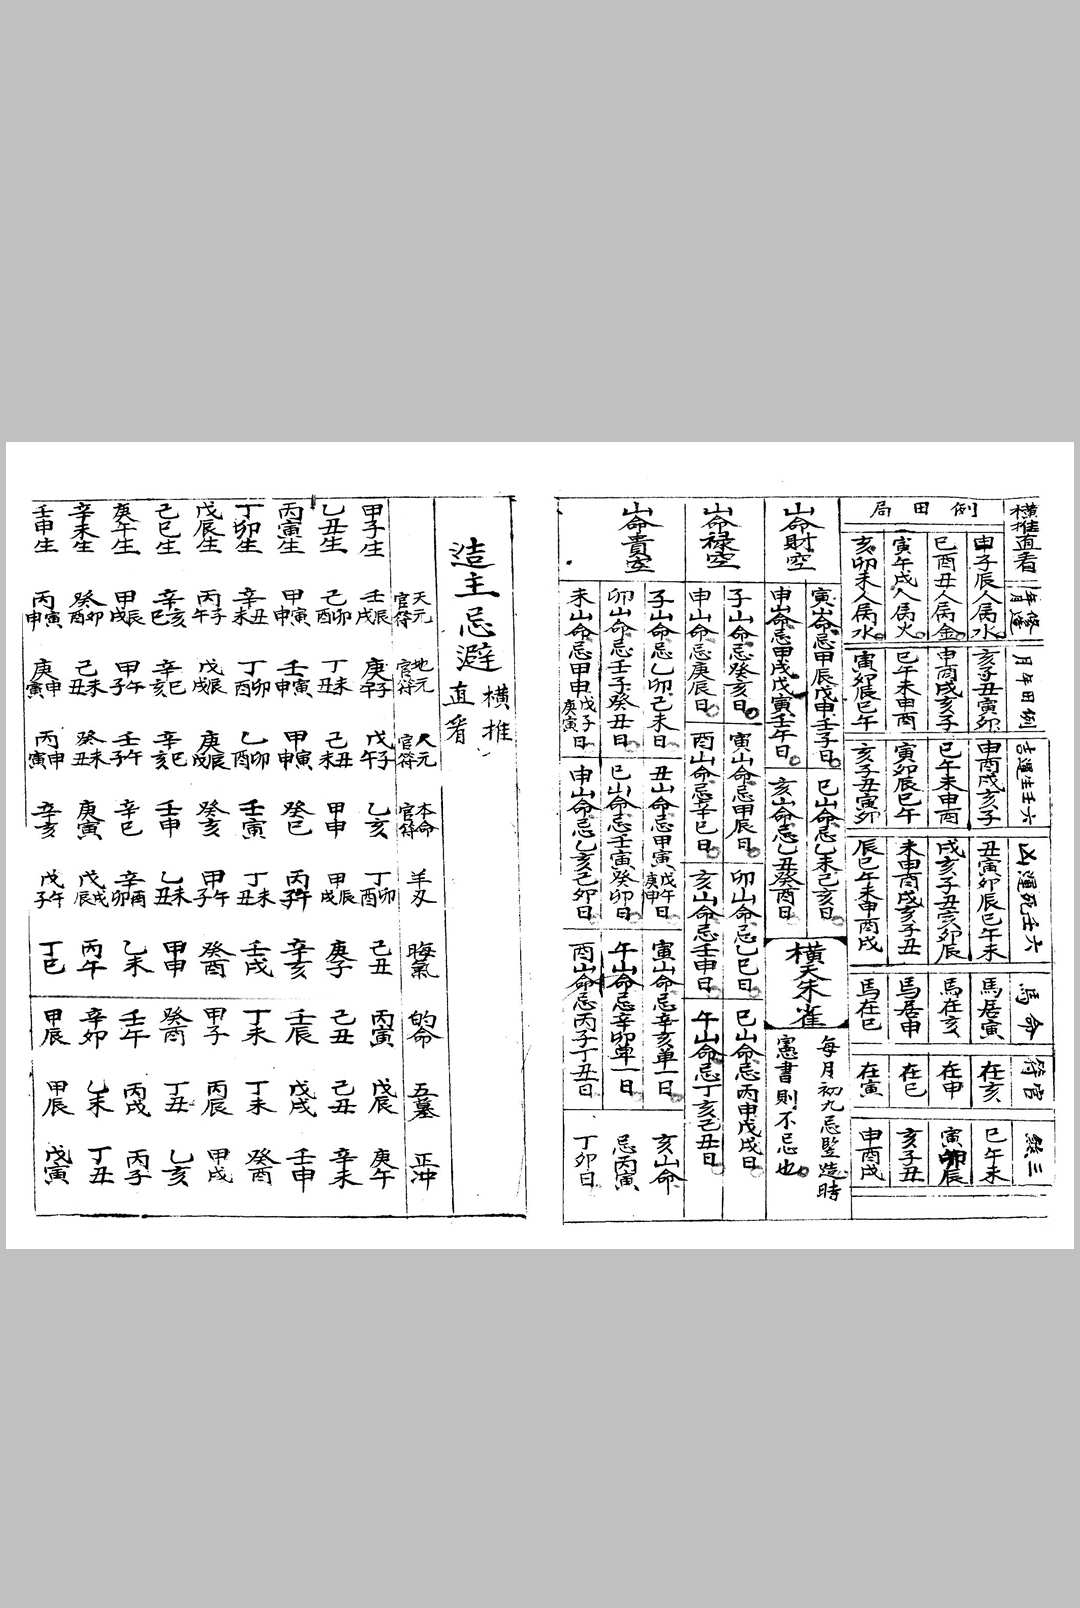 例田局
橫推直看
申子辰人屬水。
巳酉丑人屬金。
寅午戌人屬火。
亥卯未人屬水。
月年田例
亥子丑寅卯
申酉戌亥子
巳午未申酉
寅卯辰巳午
吉運生壬六
申酉戌亥子
巳午未申酉
寅卯辰巳午
亥子丑寅卯
凶運死壬六
丑寅卯辰巳午未
戌亥子丑寅卯辰
未申酉戌亥子丑
辰巳午未申酉戌
馬命
馬居寅
馬在亥
馬居申
馬在巳
符官
在亥
在申
在巳
在寅
煞三
巳午未
寅卯辰
亥子丑
申酉戌
山命財空
寅山命忌甲辰戊申壬子日。
巳山命忌乙未己亥日。
申山命忌甲戌戊寅壬午日。
亥山命忌乙丑癸酉日
橫天朱雀
每月初九忌豎造時
憲書則不忌也。
山命祿空
子山命忌癸亥日。
寅山命忌甲辰日。
卯山命忌乙巳日。
巳山命忌丙申戊戌日。
申山命忌庚辰日。
酉山命忌辛巳日。
亥山命忌壬申日。
午山命忌丁亥己丑日。
山命貴空
子山命忌乙卯己未日
丑山命忌甲寅戊午庚申日
寅山命忌辛亥单一日
亥山命
卯山命忌壬子癸丑日
巳山命忌壬寅癸卯日
午山命忌辛卯单一日
忌丙寅
未山命忌甲申戊子庚寅日
申山命忌乙亥己卯日
酉山命忌丙子丁丑日
丁卯日
造主忌避
橫推
直看
天元官符
地元官符
人元官符
本命官符
羊刃
晦氣
的命
五墓
正冲
甲子生 壬戌辰 庚子午 戊子午 乙亥 丁酉卯 己丑 丙寅 戊辰 庚午
乙丑生 己酉卯 丁丑未 己未丑 甲申 甲戌辰 庚子 己丑 己丑 辛未
丙寅生 甲申寅 壬申寅 甲申寅 癸巳 丙子午 辛亥 壬辰 戊戌 壬申
丁卯生 辛未丑 丁酉卯 乙酉卯 壬寅 丁丑未 壬戌 丁未 丁未 癸酉
戊辰生 丙午子 戊戌辰 庚戌辰 癸亥 甲子午 癸酉 甲子 丙辰 甲戌
己巳生 辛巳亥 辛亥巳 辛亥巳 壬申 乙丑未 甲申 癸酉 丁丑 乙亥
庚午生 甲戌辰 甲子午 壬子午 辛巳 辛卯酉 乙未 壬午 丙戌 丙子
辛未生 癸酉卯 己丑未 癸丑未 庚寅 戊辰戌 丙午 辛卯 乙未 丁丑
壬申生 丙申寅 庚寅申 丙寅申 辛亥 戊子午 丁巳 甲辰 甲辰 戊寅